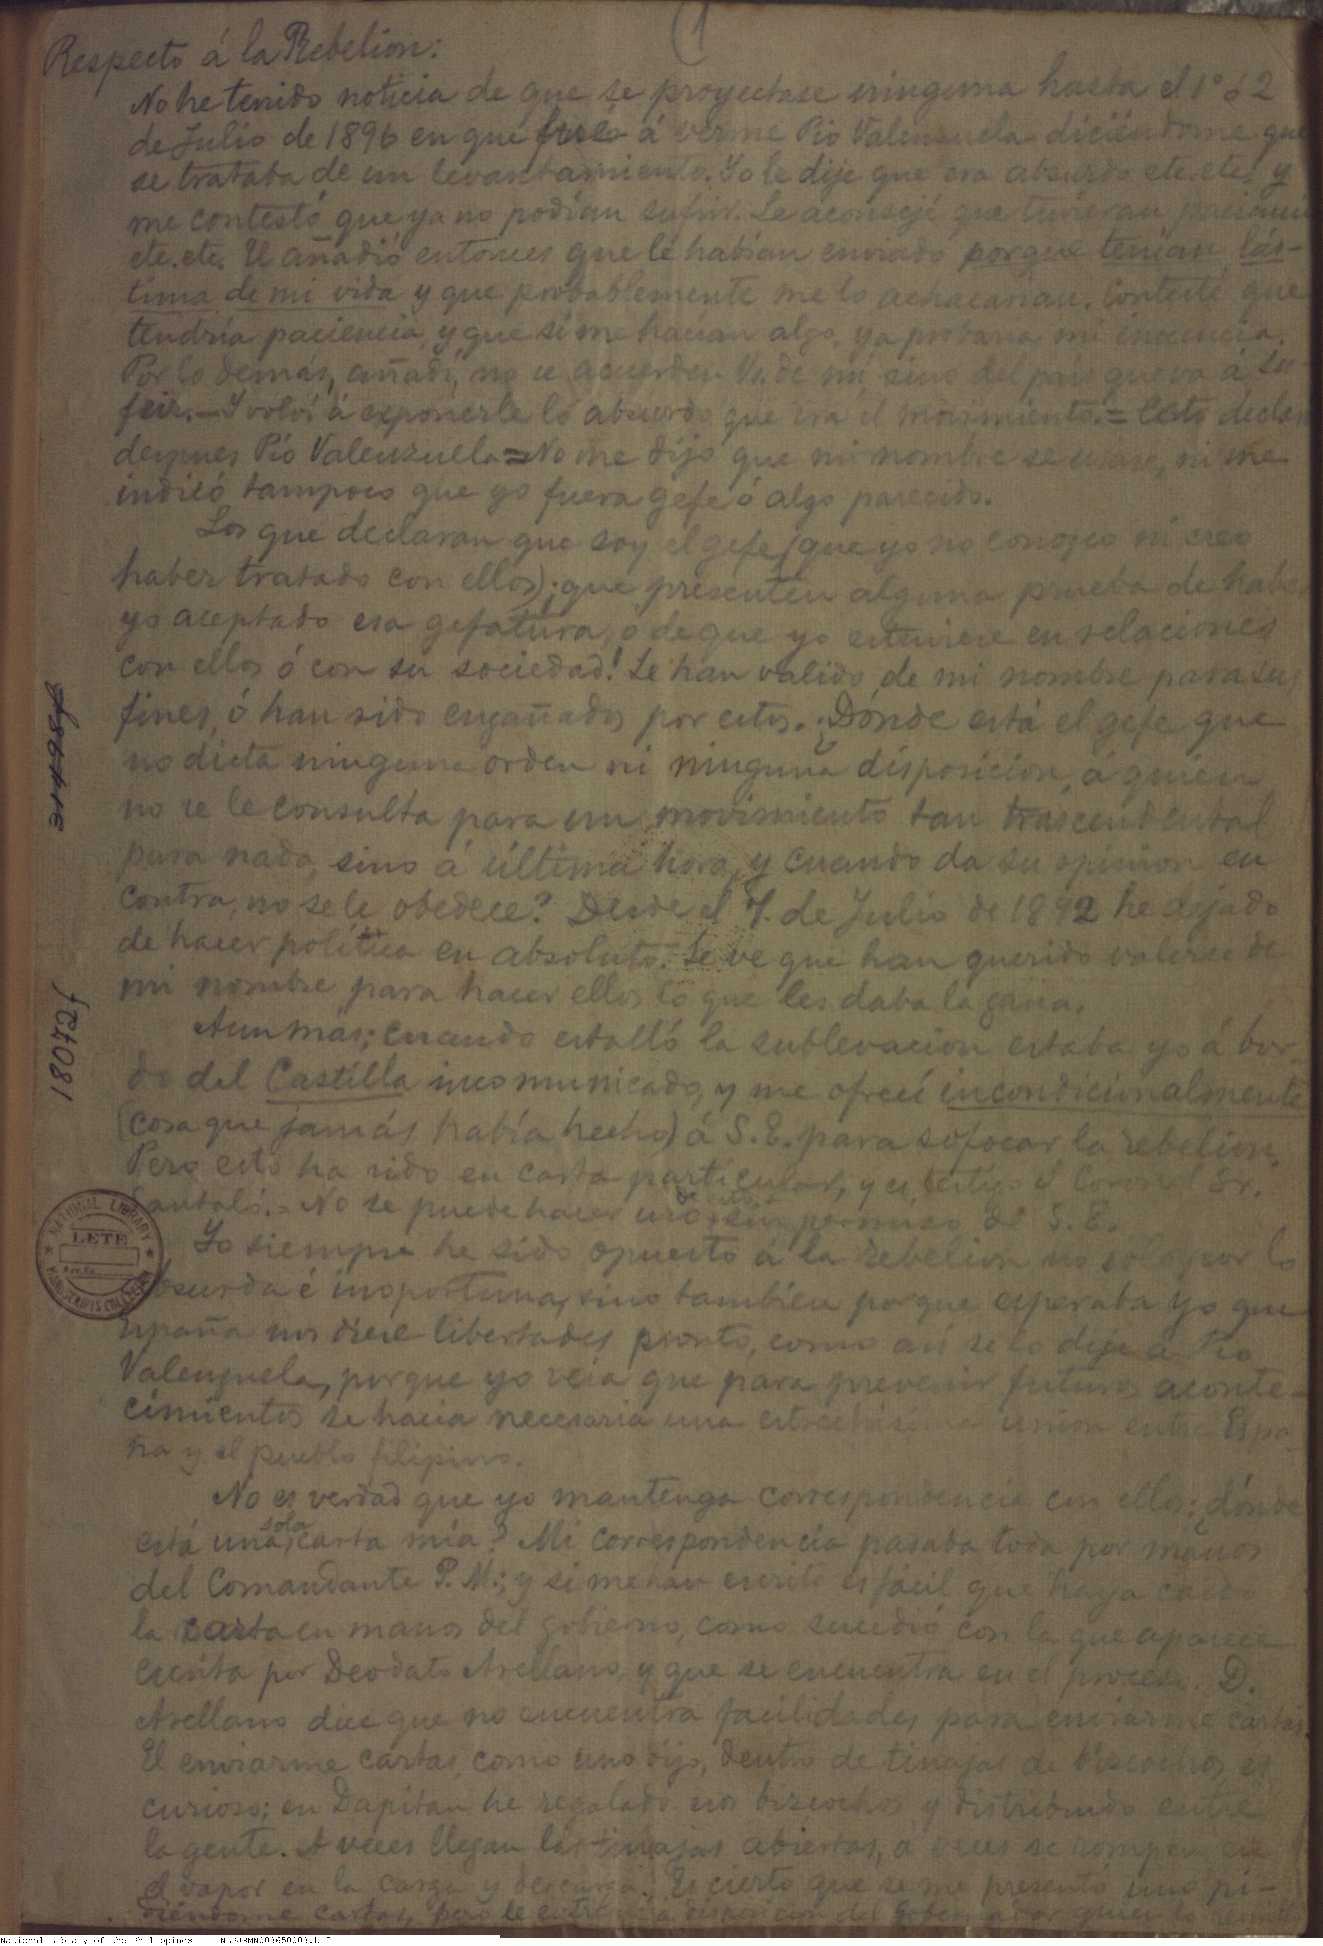 (1
Respecto á la Rebelion:
No he tenido noticia de que se proyectase ninguna hasta el 1º ó 2
de Julio de 1896 en que fué á verme Pio Valenzuela diciéndome que
se trataba de un levantamiento. Yo le dije que era absurdo etc. etc. y
me contestó que ya no podían sufrir. Le aconsejé que tuvieran paciencia
etc. etc. El añadió entonces que le habían enviado porque tenian lás-
tima de mi vida y que probablemente me lo achacarían. Contesté que
tendría paciencia, y que si me hacían algo, ya probaria mi inocencia.
Por lo demás, añadí, no se acuerden Vs. de mí sino del país que va á su-
frir.— Y volví á exponerle lo absurdo que era el movimiento.= Esto declaró
despues Pío Valenzuela=No me dijo que mi nombre se usase, ni me
indicó tampoco que yo fuera gefe ó algo parecido.
Los que declaran que soy el gefe (que yo no conozco ni creo
haber tratado con ellos); que presenten alguna prueba de haber
yo aceptado esa gefatura, ó de que yo estuviese en relaciones
con ellos ó con su sociedad! Se han valido de mi nombre para sus
fines, ó han sido engañados por estos. ¿Dónde está el gefe que
no dicta ninguna orden ni ninguna disposicion, á quien
no se le consulta para un movimiento tan trascendental
para nada, sino á última hora, y cuando da su opinion en
contra, no se le obedece? Desde el 7. de Julio de 1892 he dejado
de hacer política en absoluto. Se ve que han querido valerse de
mi nombre para hacer ellos lo que les daba la gana.
Aun más; cuando estalló la sublevacion estaba yo á bor-
do del Castilla incomunicado, y me ofrecí incondicionalmente
(cosa que jamás había hecho) á S. E. para sofocar la rebelion.
Pero esto ha sido en carta particular, y es testigo el Coronel Sr.
Santaló.= No se puede hacer uso de esto sin permiso de S. E.
Yo siempre he sido opuesto á la rebelion no solo por lo
absurda é inoportuna, sino tambien porque esperaba yo que
España nos diese libertades pronto, como así se lo dije á Pio
Valenzuela, porque yo veia que para prevenir futuros aconte-
cimientos se hacía necesaria una estrechísima union entre Espa-
ña y el pueblo filipino.
No es verdad que yo mantenga correspondencia con ellos: ¿dónde
está una sola carta mía? Mi correspondencia pasaba toda por manos
del Comandante P. M.; y si me han escrito es fácil que haya caido
la carta en manos del gobierno, como sucedió con la que aparece
escrita por Deodato Arellano y que se encuentra en el proceso. D.
Arellano dice que no encuentra facilidades para enviarme cartas.
El enviarme cartas, como uno dijo, dentro de tinajas de bizcochos, es
curioso; en Dapitan he regalado esos bizcochos y distribuido entre
la gente. A veces llegan las tinajas abiertas, á veces se rompen en
el vapor en la carga y descarga. Es cierto que se me presentó uno pi-
diéndome cartas, pero le á disposicion del Gobernador quien lo
31498
18078
NATIONAL LIBRARY
LETE
MANUSCRIPTS COLLECTION
National Library of the Philippines